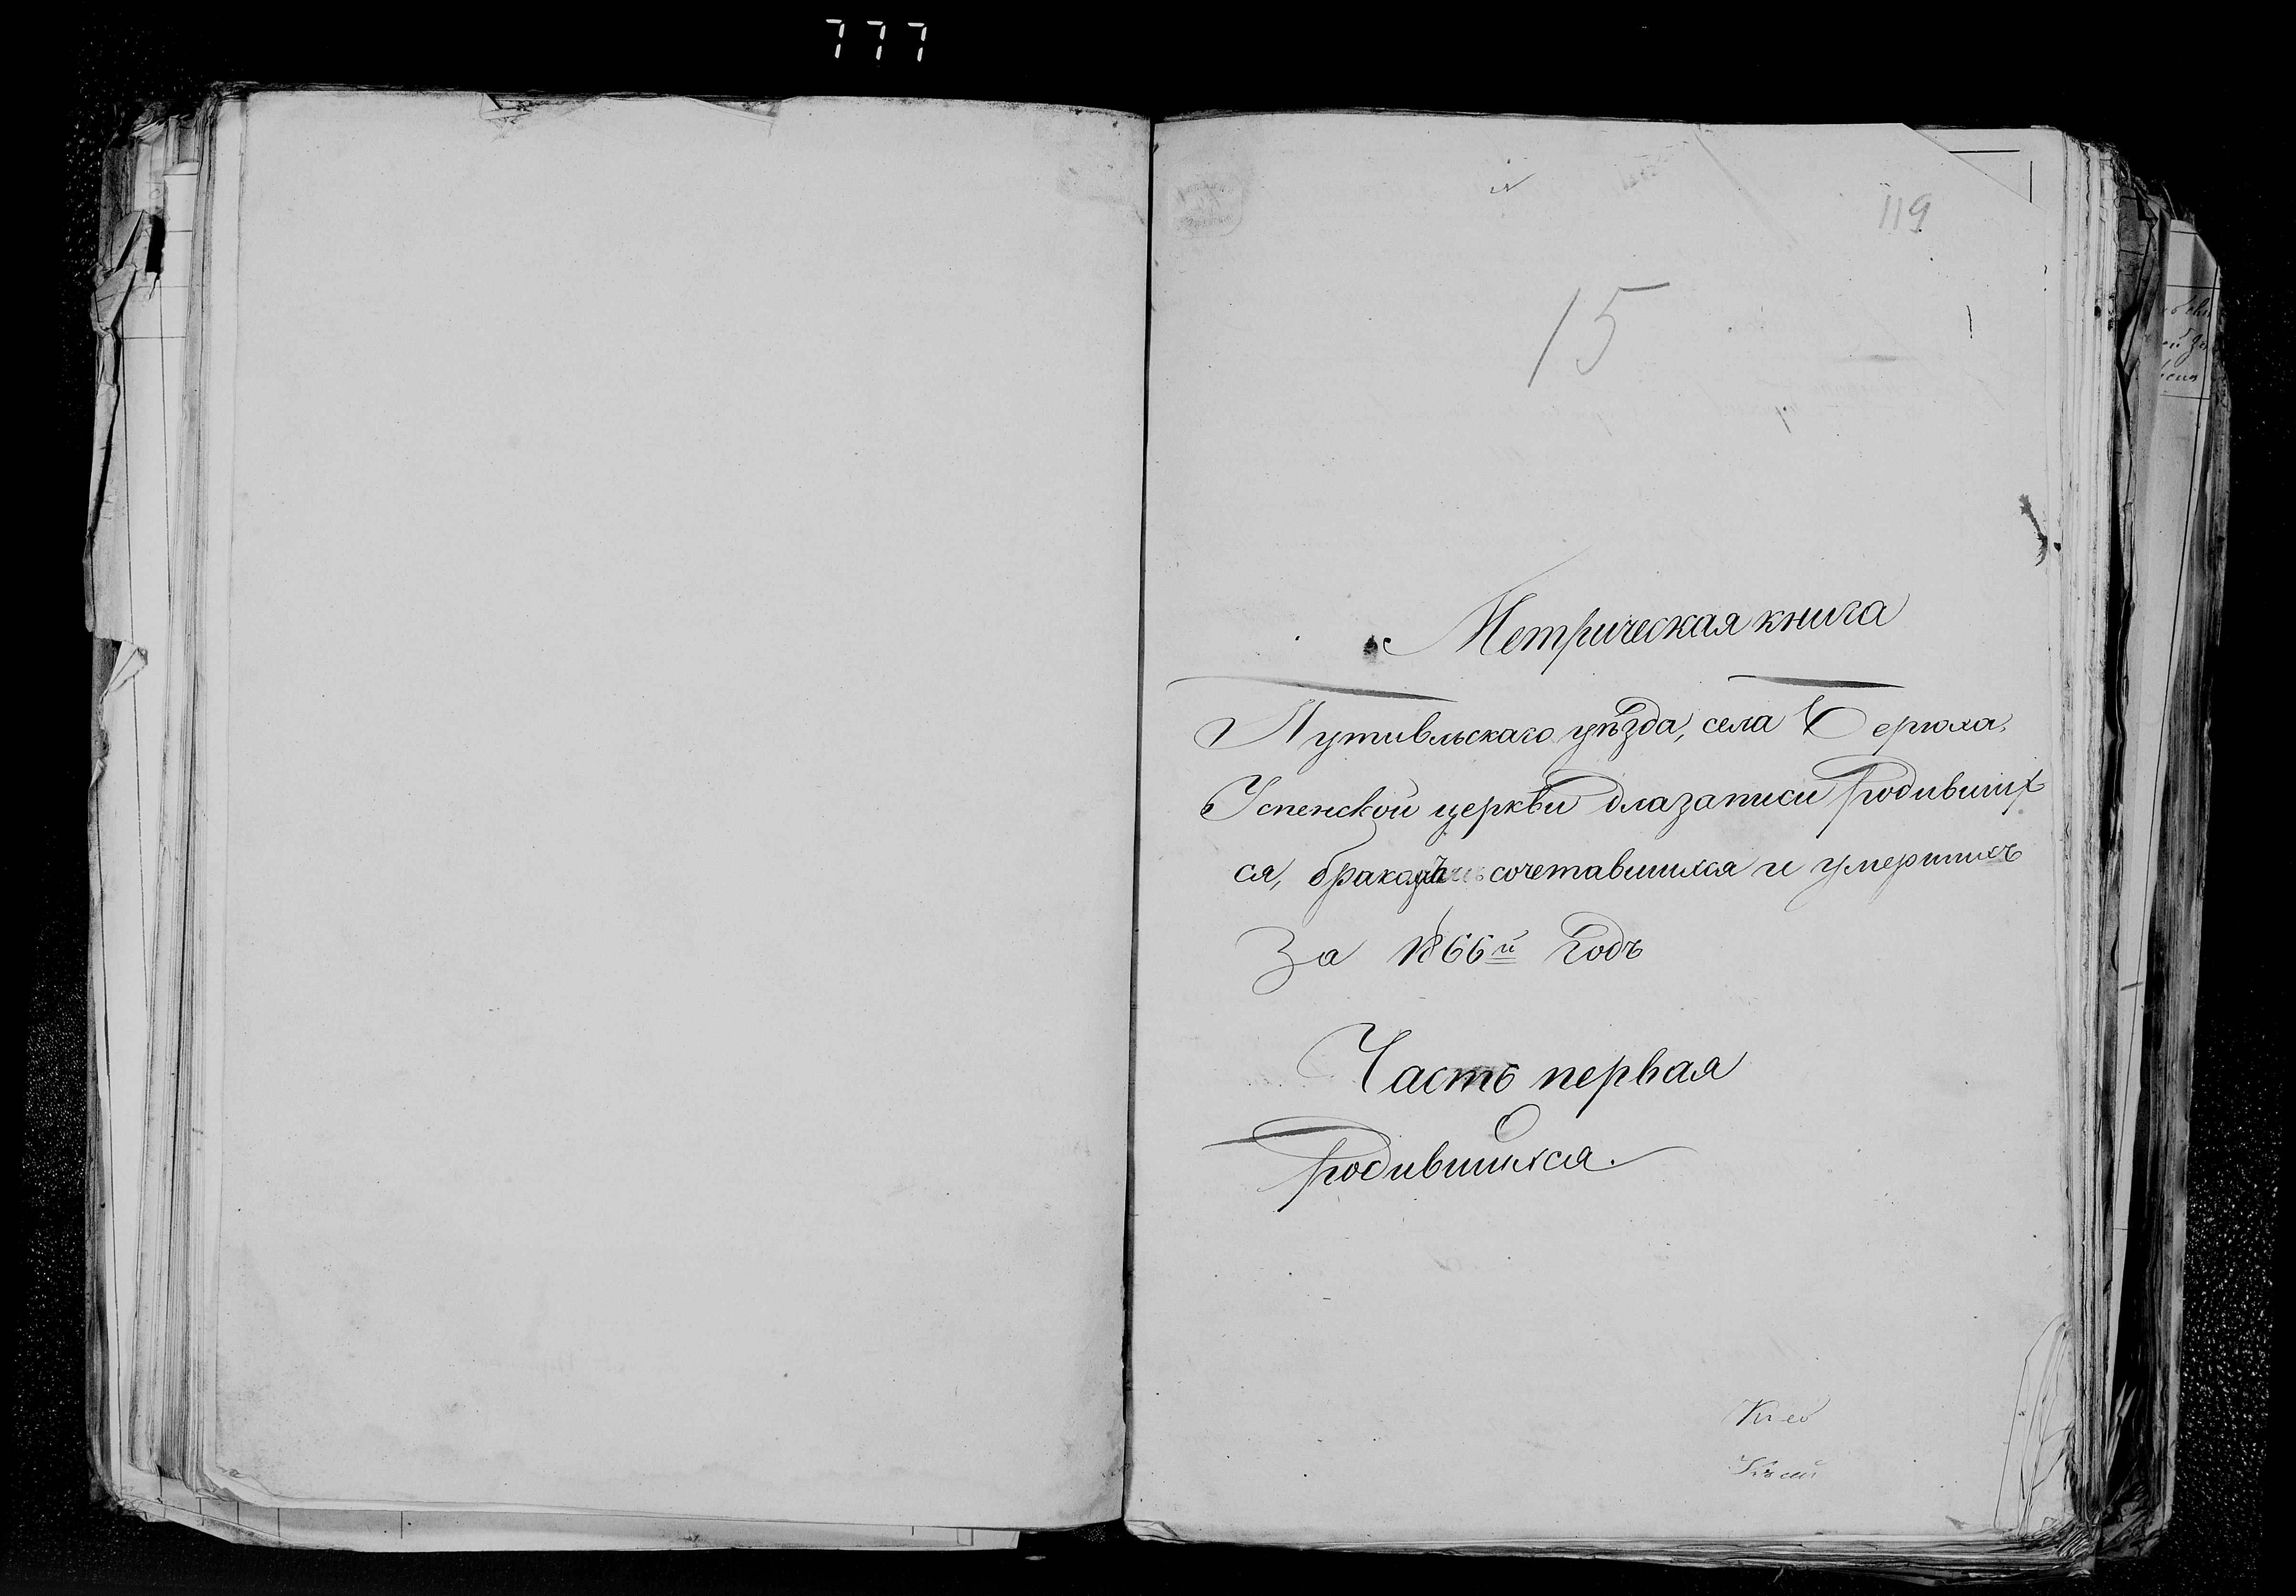 777
119
15
Метрическая книга
Путивльскаго уѣзда, села Берюха,
Успенской церкви для записи родивших
ся, бракомъ сочетавшихся и умершихъ
За 1866й годъ
Часть первая
О
родившихся.